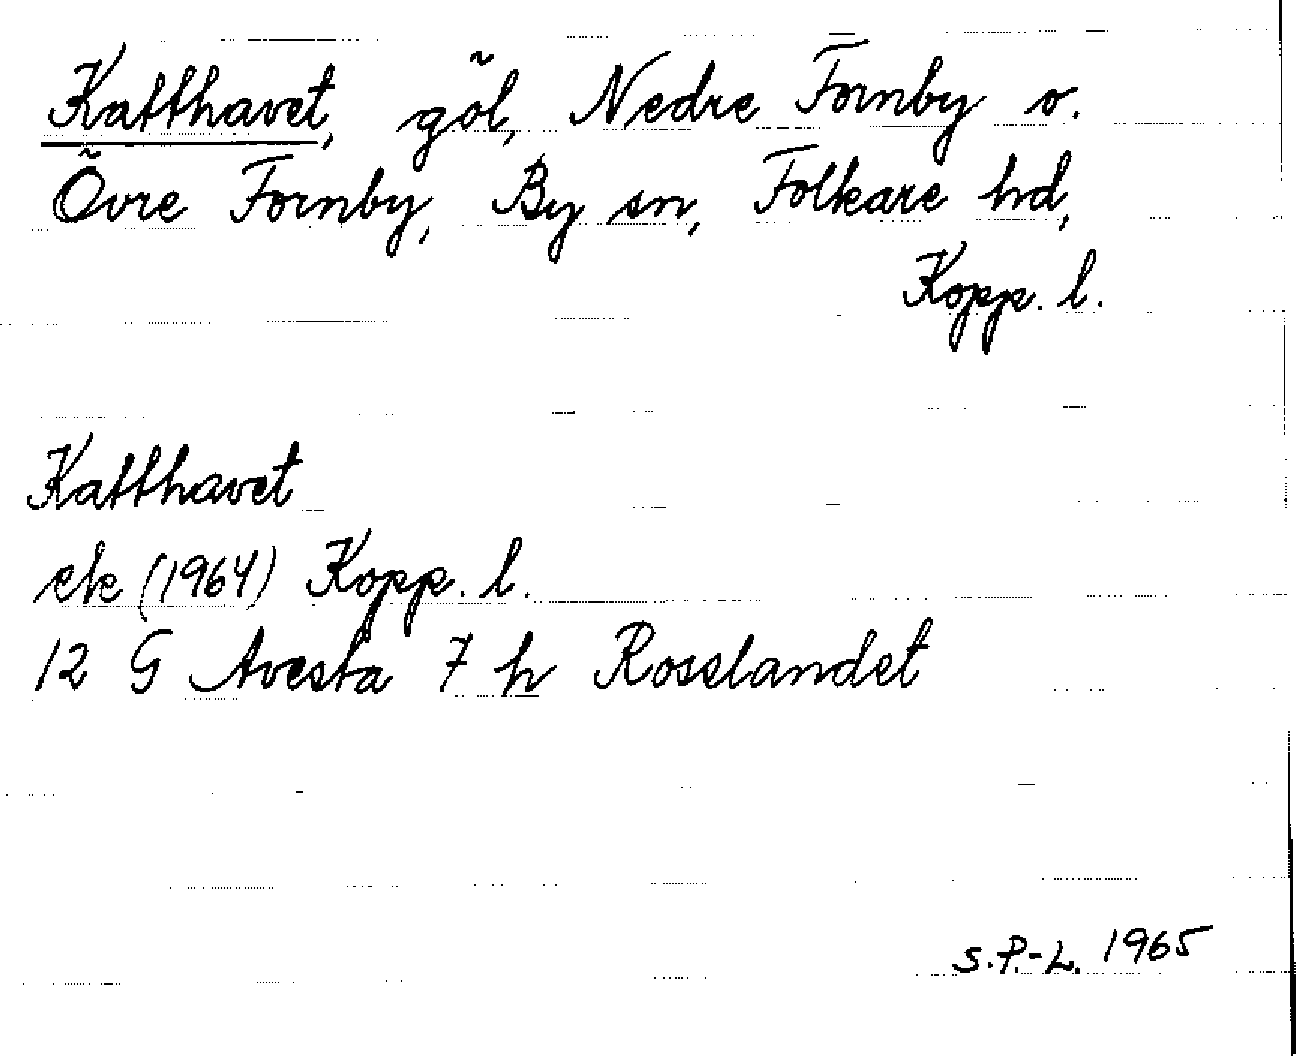 Katthavet, göl, Nedre Fornby o.
Övre Fornby, By sn, Folkare hd,
Kopp. l.
Katthavet
ek (1964) Kopp. l.
12 G Avesta 7 h Rosslandet
S.P.-L. 1965